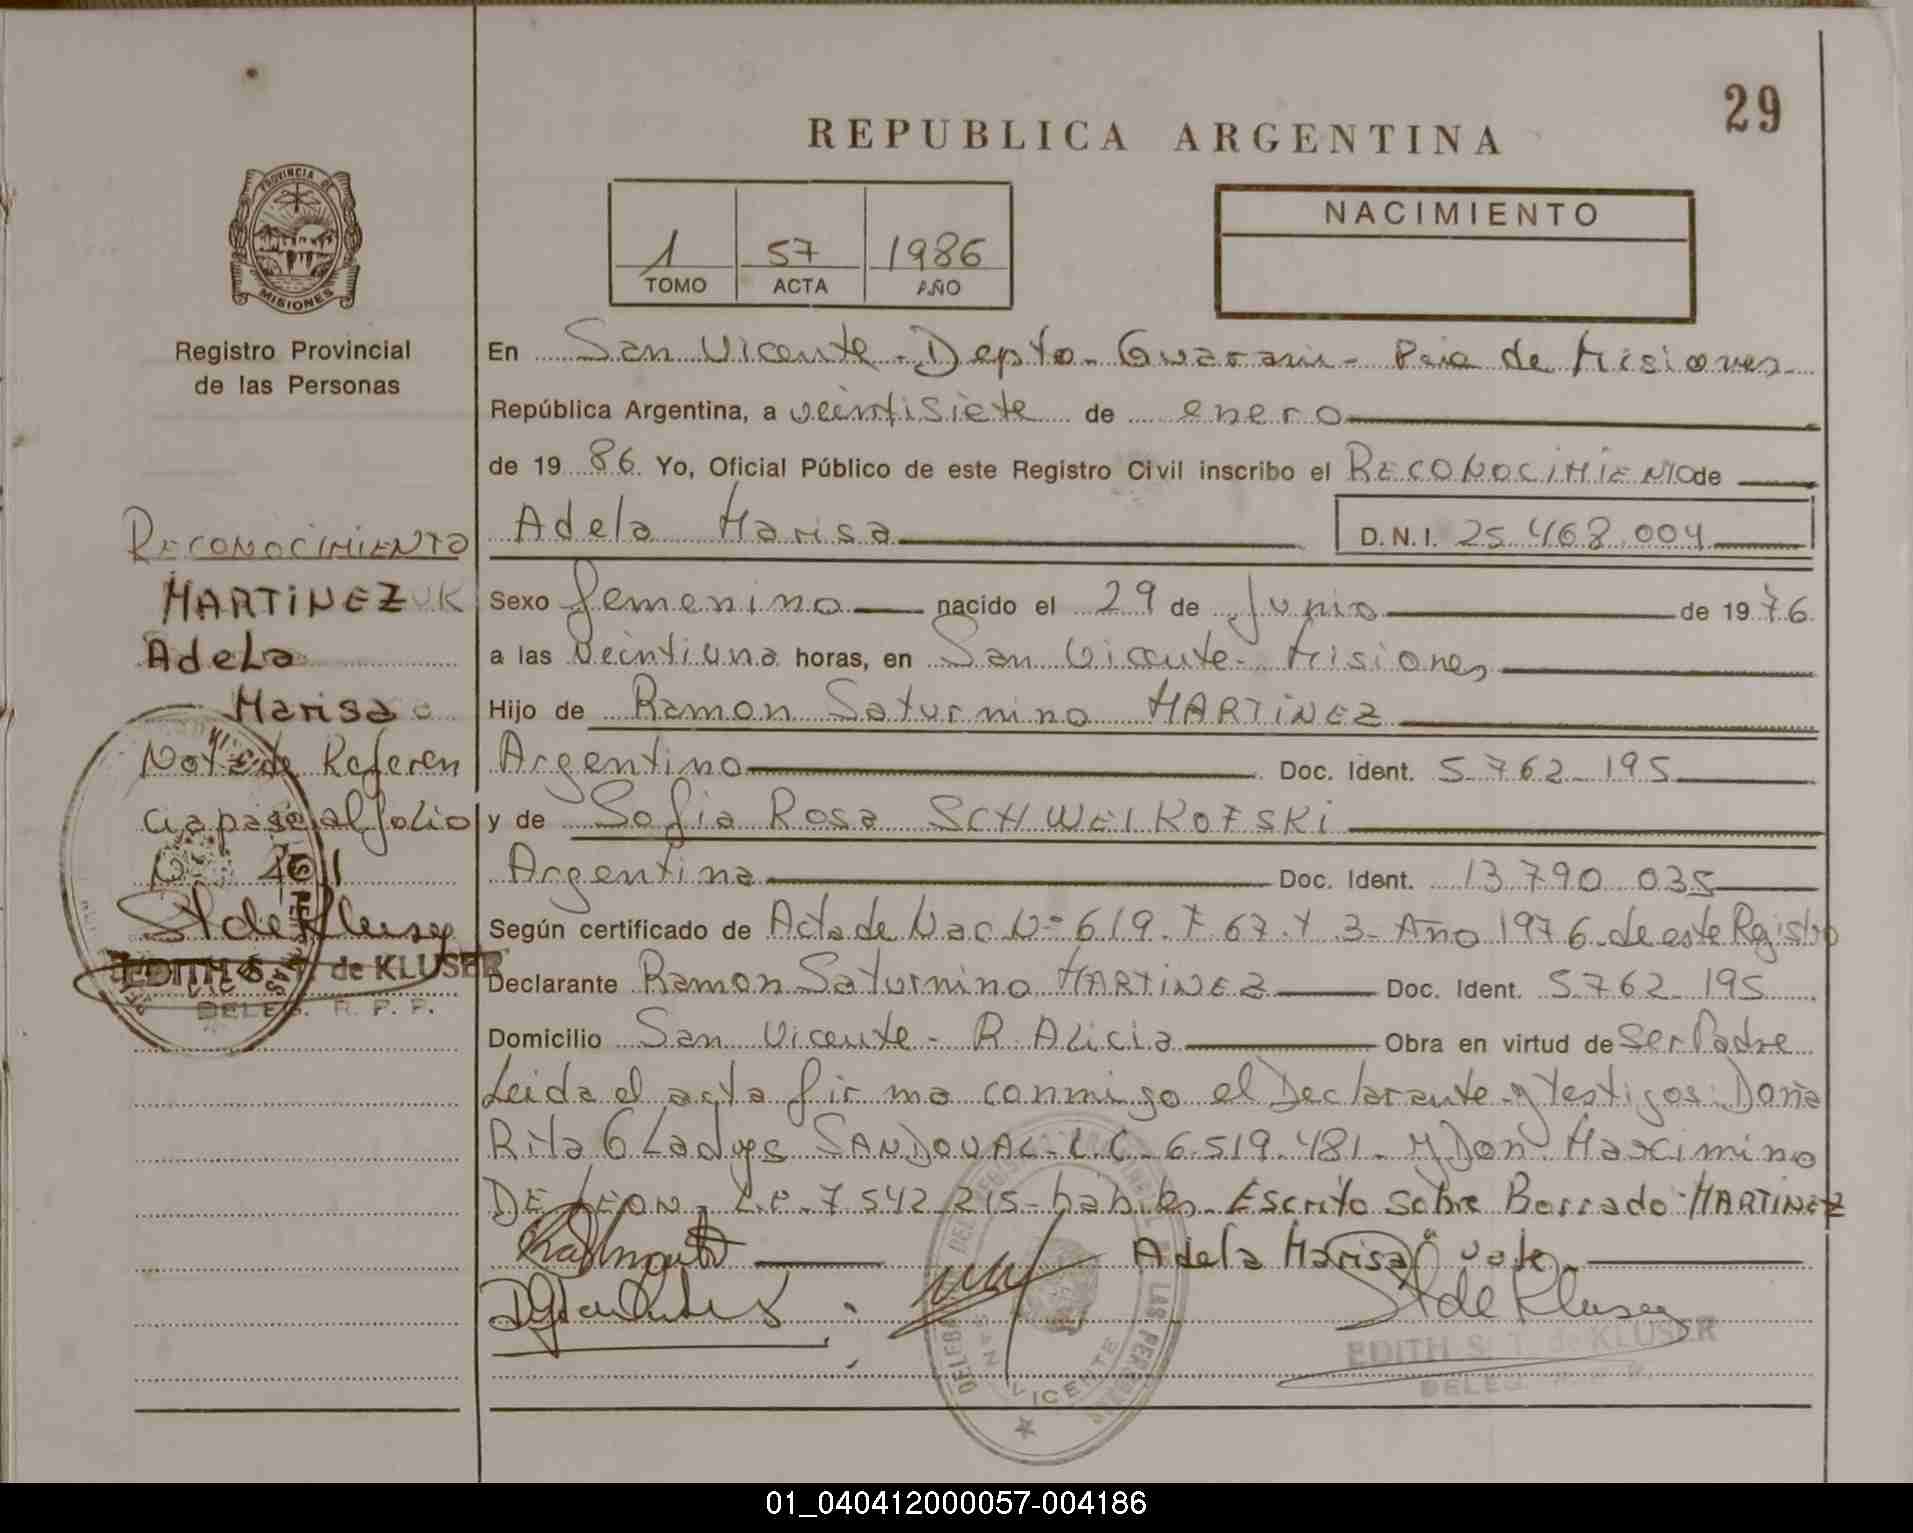 29
REPUBLICA ARGENTINA
PROVINCIA DE
MISIONES
Registro Provincial
de las Personas
1 57 1986
TOMO ACTA AÑO
NACIMIENTO
En San Vicente - Depto. Guarani - Pcia de Misiones
República Argentina, a veintisiete de enero
de 19 86 Yo, Oficial Público de este Registro Civil inscribo el RECONOCIMIENTO de
Adela Marisa D.N.I. 25.468.004
Sexo femenino nacido el 29 de Junio de 19 76
a las veintiuna horas, en San Vicente - Misiones
Hijo de Ramon Saturnino MARTINEZ
Argentino Doc. Ident. 5.762.195
y de Sofia Rosa SCHWEIKOFSKI
Argentina Doc. Ident. 13.790.035
Según certificado de Acta de Nac Nº 619. F 67. T 3 - Año 1976. de este Registro
Declarante Ramon Saturnino MARTINEZ Doc. Ident. 5.762.195
Domicilio San Vicente - R. Alicia Obra en virtud de Ser Padre
Leida el acta firma conmigo el Declarante y testigos: Doña
Rita Gladys SANDOVAL - L.C. 6.519.481 - y Don Maximino
DE LEON - L.E. 7.542.215 - Escrito sobre Borrado: MARTINEZ
Adela Marisa vale
St de Kluser
EDITH S. T. de KLUSER
DELEG. R. P. P.
RECONOCIMIENTO
MARTINEZ
Adela
Marisa
Nota de Referen
cia pase al folio
Nº
St de Kluser
EDITH S. T. de KLUSER
DELEG. R. P. P.
SAN VICENTE
LAS PERSONAS
01_040412000057-004186